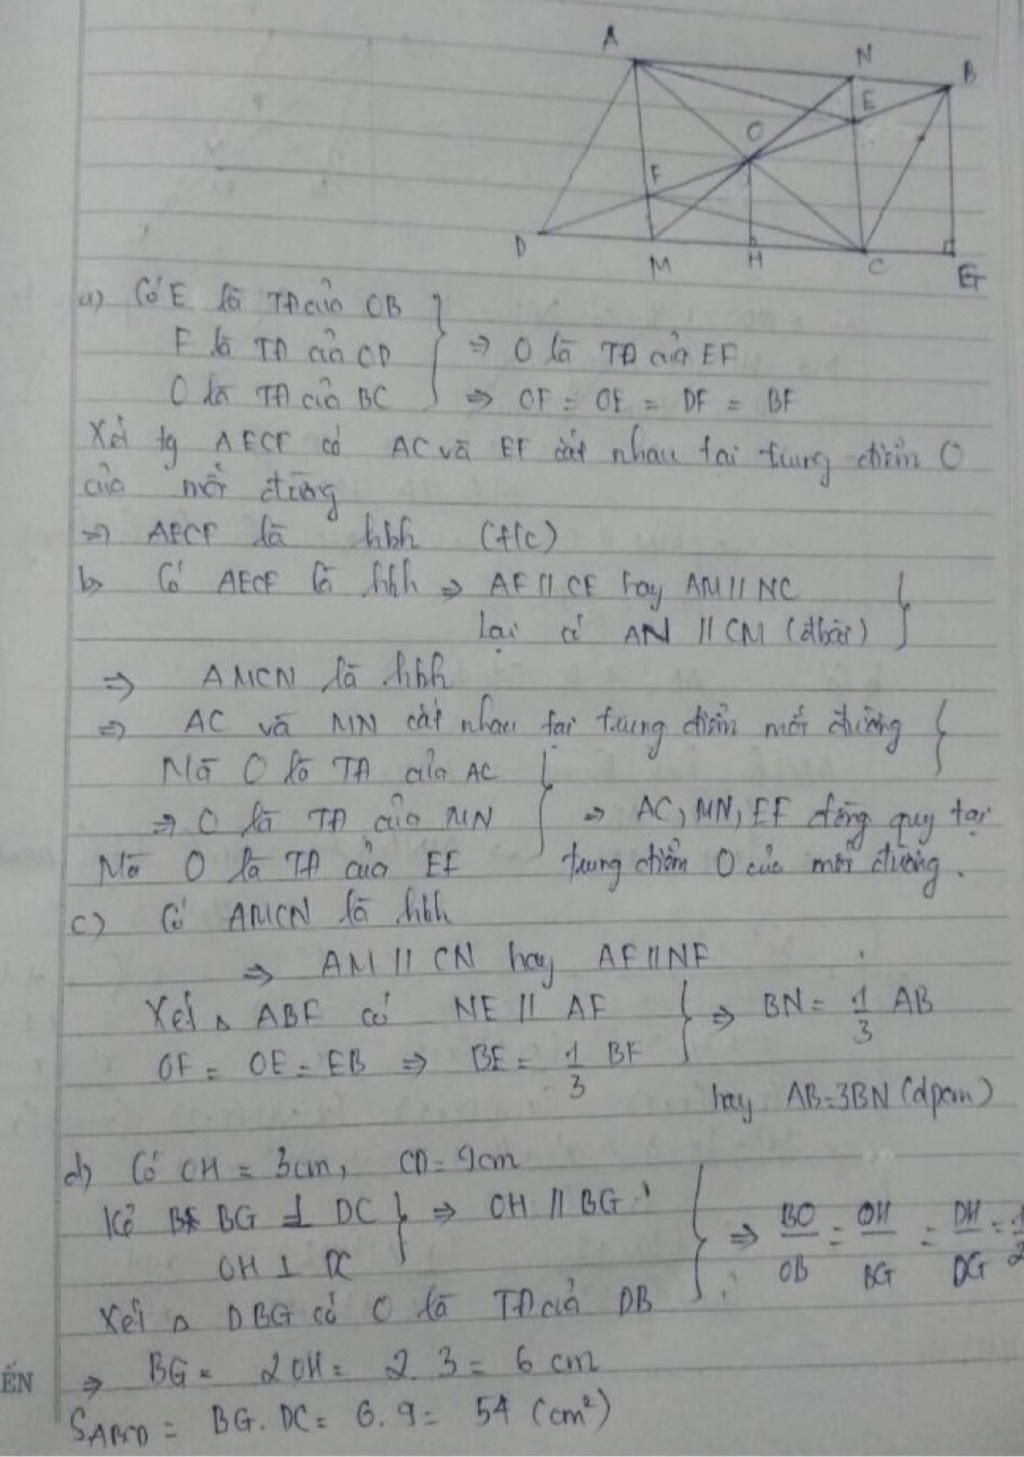 A N B
E
O
F
D M H C G
a) Có E là TĐ của OB
F là TĐ của OD
O là TĐ của BC
⇒ O là TĐ của EF
⇒ OF = OE = DF = BF
Xét tg AECF có AC và EF cắt nhau tại trung điểm O
của mỗi đường
⇒ AECF là hbh (t/c)
b) Có AECF là hbh ⇒ AF // CE hay AM // NC
lại có AN // CM (đbài)
⇒ AMCN là hbh
⇒ AC và MN cắt nhau tại trung điểm mỗi đường
Mà O là TĐ của AC
⇒ O là TĐ của MN
Mà O là TĐ của EF
⇒ AC, MN, EF đồng quy tại
trung điểm O của mỗi đường.
c) Có AMCN là hbh
⇒ AM // CN hay AF // NE
Xét Δ ABF có NE // AF
OF = OE = EB ⇒ BE = 1/3 BF
⇒ BN = 1/3 AB
hay AB = 3BN (đpcm)
d) Có OH = 3cm, CD = 9cm
Kẻ BG ⊥ DC
OH ⊥ DC
⇒ OH // BG
Xét Δ DBG có O là TĐ của DB
⇒ BO/OB = OH/BG = DH/DG = 1/2
⇒ BG = 2OH = 2.3 = 6 cm
S ABCD = BG. DC = 6.9 = 54 (cm²)
ẾN